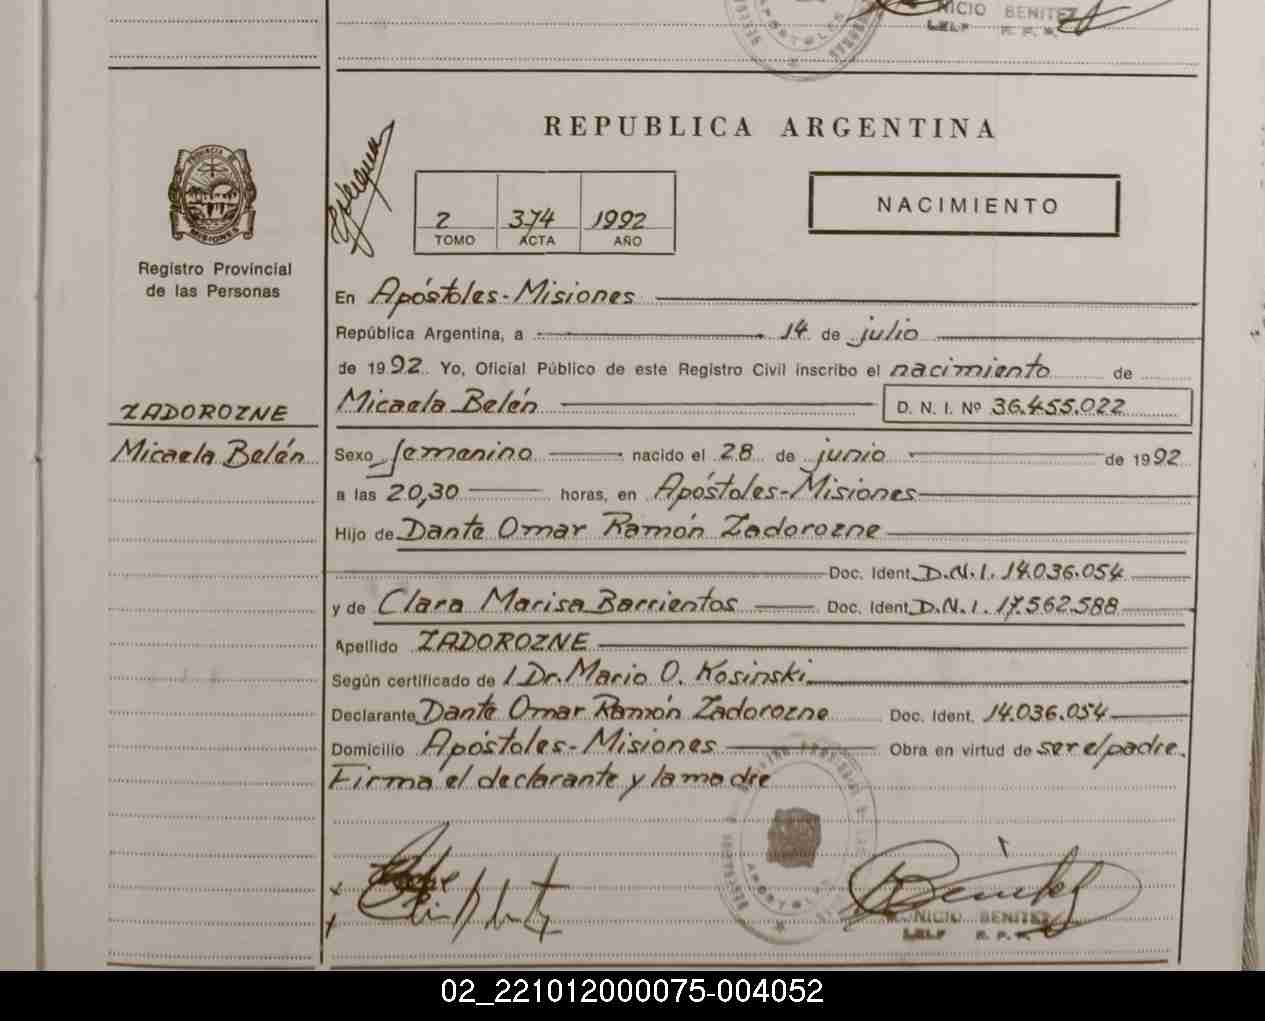 NICIO BENITEZ
APOSTOLES
REPUBLICA ARGENTINA
PROVINCIA DE
MISIONES
2 374 1992
TOMO ACTA AÑO
NACIMIENTO
Registro Provincial
de las Personas
En Apóstoles-Misiones
República Argentina, a 14 de julio
de 1992 Yo, Oficial Público de este Registro Civil inscribo el nacimiento de
ZADOROZNE
Micaela Belén
Micaela Belén D. N. I. Nº 36.455.022
Sexo femenino nacido el 28 de junio de 1992
a las 20,30 horas, en Apóstoles-Misiones
Hijo de Dante Omar Ramón Zadorozne
Doc. Ident. D.N.I. 14.036.054
y de Clara Marisa Barrientos Doc. Ident. D.N.I. 17.562.588
Apellido ZADOROZNE
Según certificado de / Dr. Mario O. Kosinski
Declarante Dante Omar Ramón Zadorozne Doc. Ident. 14.036.054
Domicilio Apóstoles-Misiones Obra en virtud de ser el padre.
Firma el declarante y la madre
APOSTOLES
NICIO BENITEZ
02_221012000075-004052